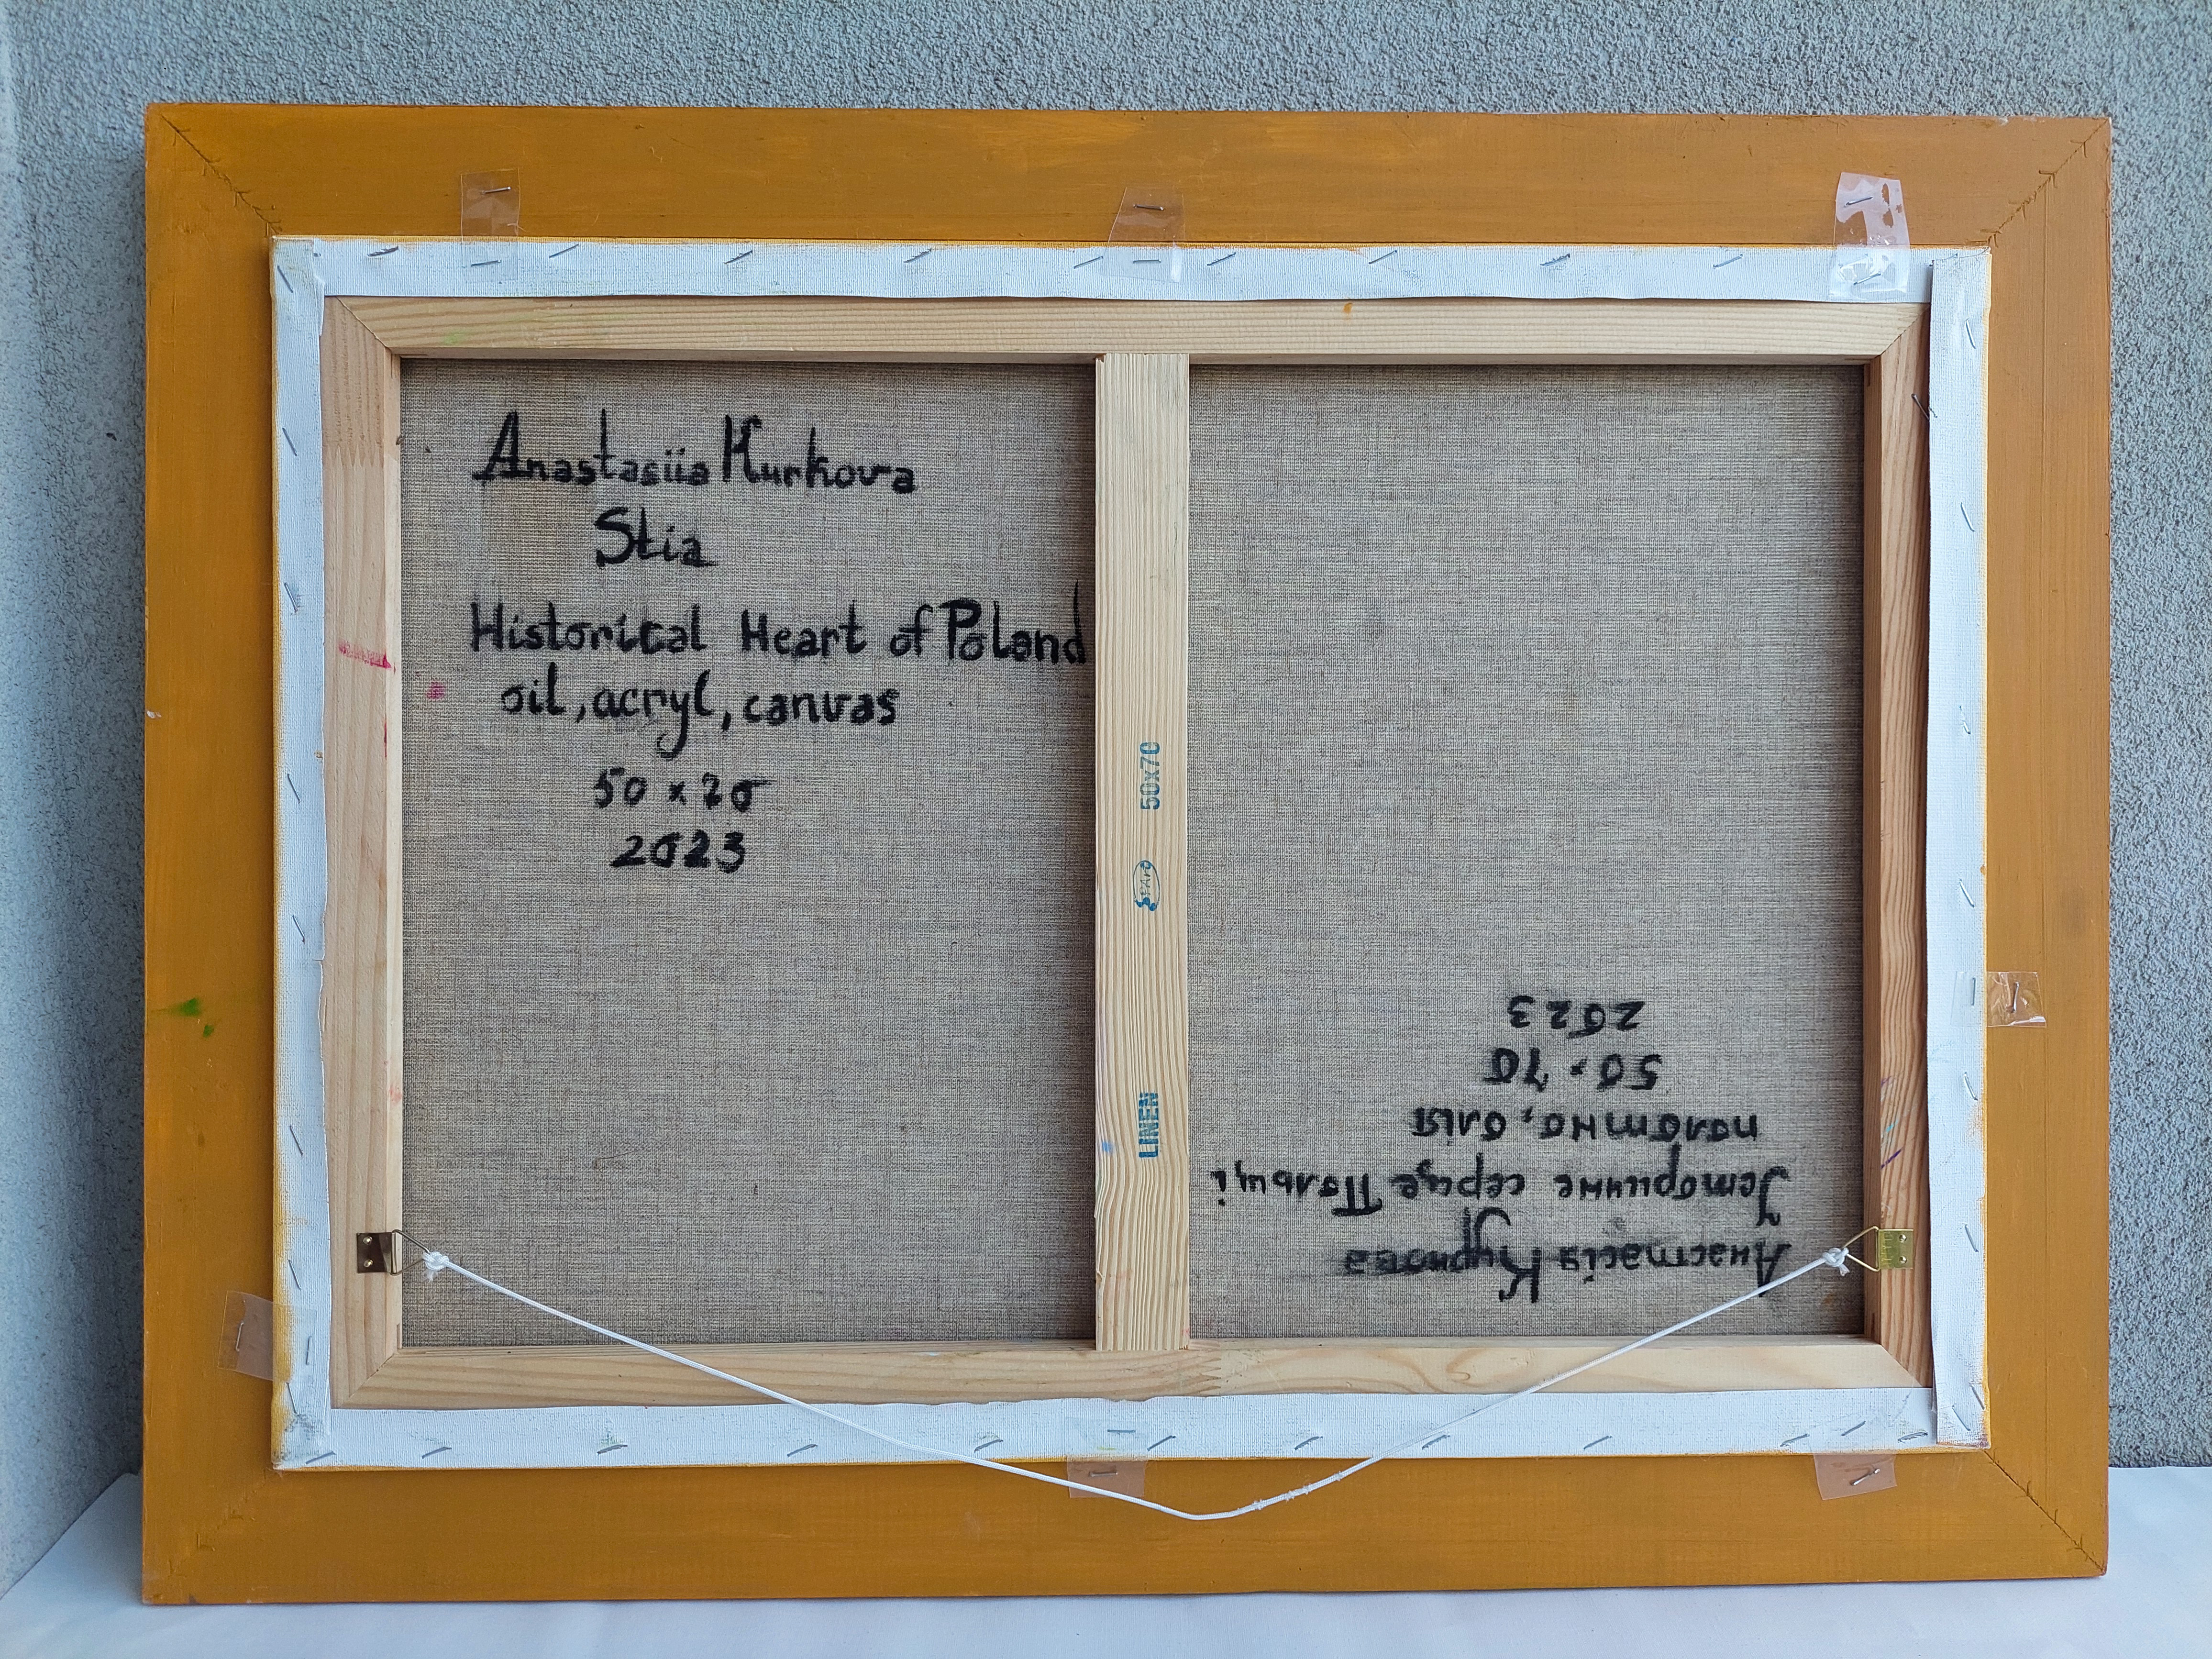 Anastasiia Kurkova
Stia
Historical Heart of Poland
oil, acryl, canvas
50 x 70
2023
50x70
LINEN
Анастасія Куркова
Історичне серце Польщі
полотно, олія
50 × 70
2023